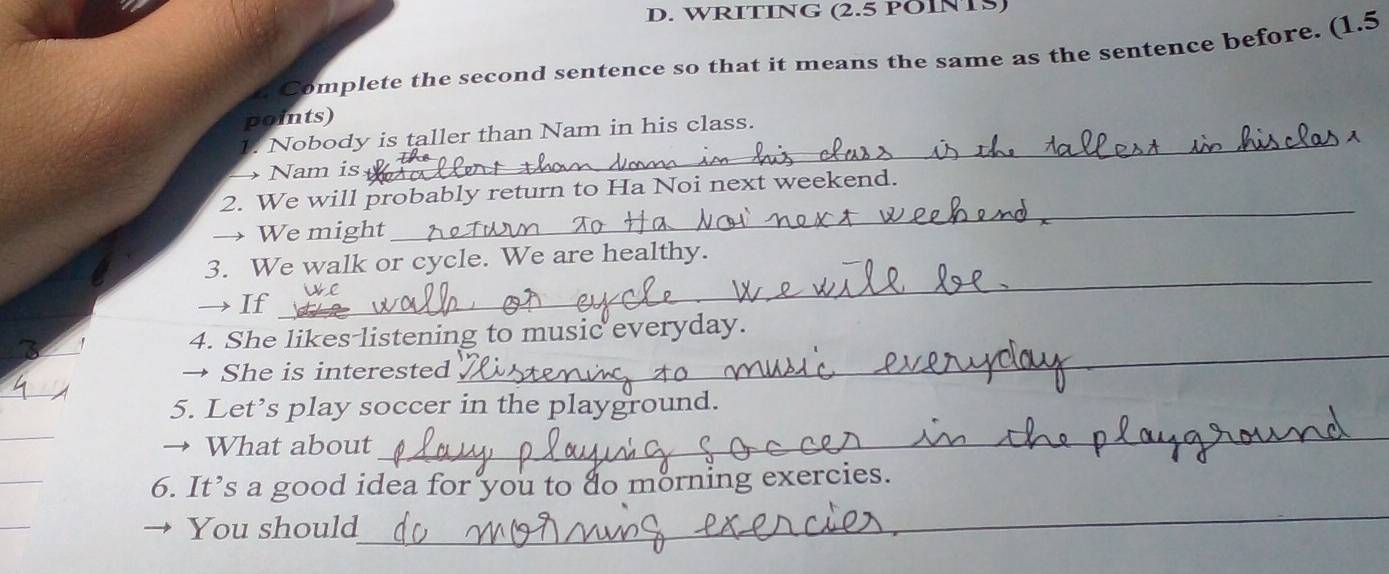 D. WRITING (2.5 POINTS)
Complete the second sentence so that it means the same as the sentence before. (1.5
points)
1. Nobody is taller than Nam in his class.
→ Nam is the tallent than Nam in his class is the tallest in his class
2. We will probably return to Ha Noi next weekend.
→ We might return to Ha Noi next weekend.
3. We walk or cycle. We are healthy.
→ If we walk or cycle. We will be.
4. She likes listening to music everyday.
→ She is interested in listening to music everyday
5. Let's play soccer in the playground.
→ What about play playing soccer in the playground
6. It's a good idea for you to do morning exercies.
→ You should do morning exercies.
3
4